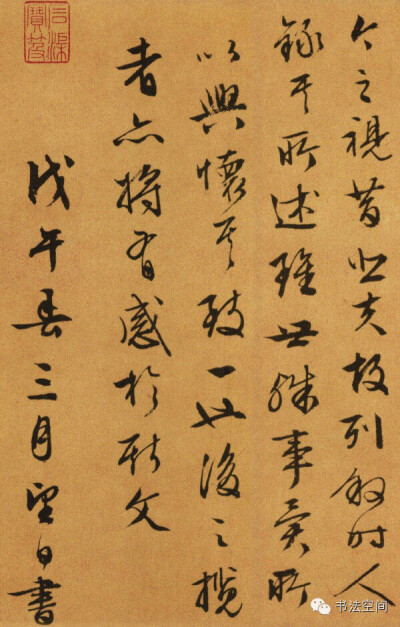 今之視昔悲夫故列敘時人
錄其所述雖世殊事異所
以興懷其致一也後之攬
者亦將有感於斯文
戊午春三月望日書
石渠寶笈
书法空间